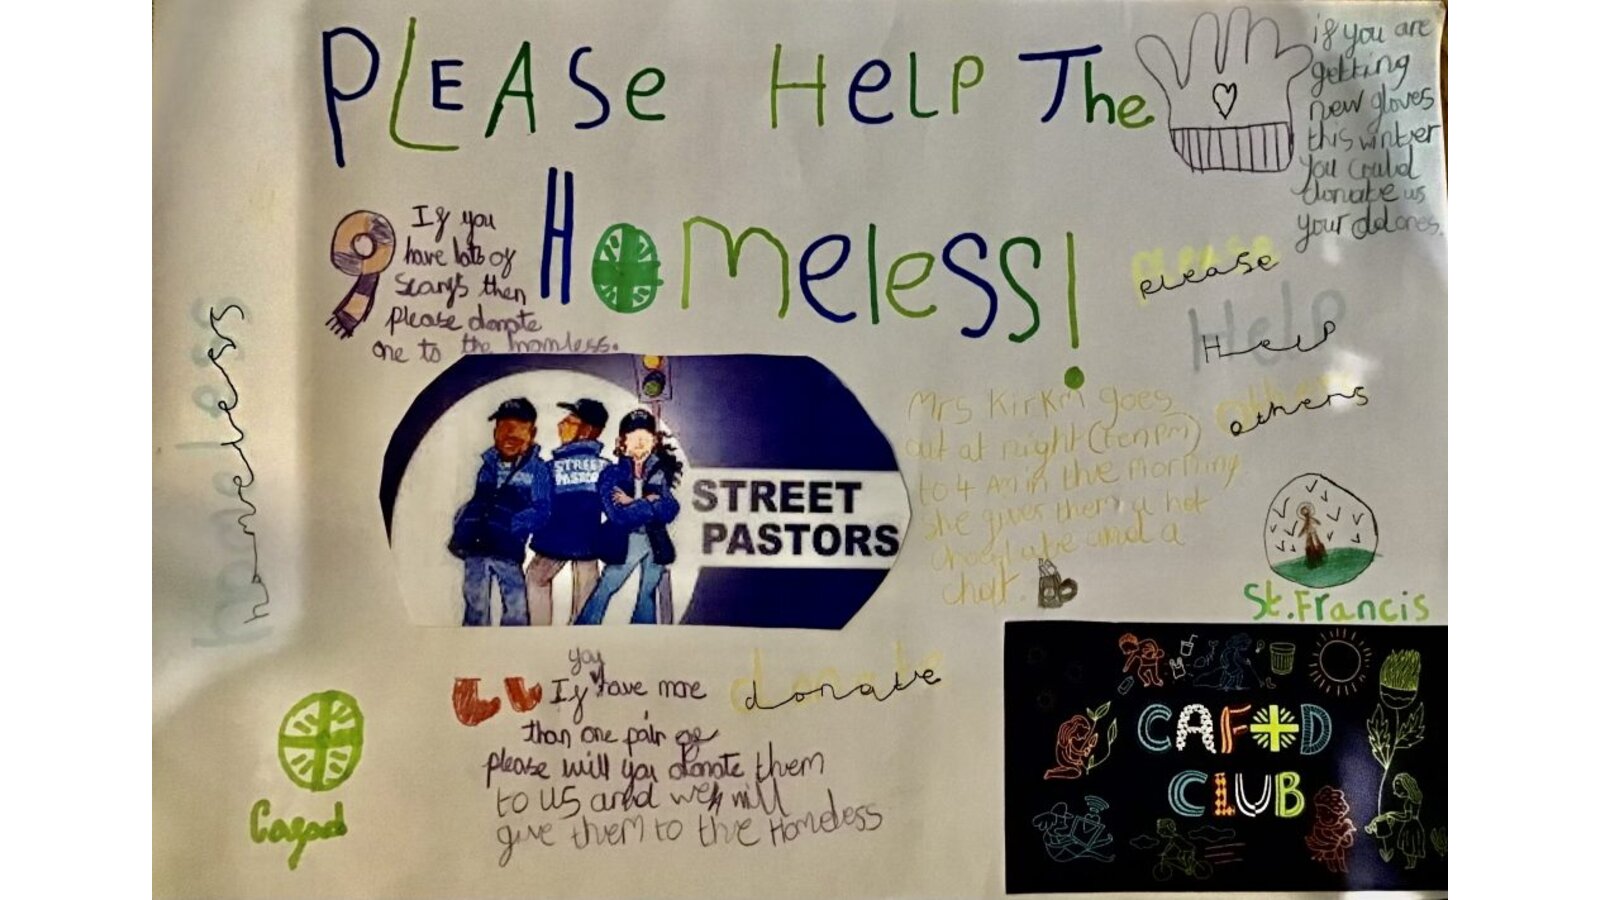 PLEASe HeLP The
HOMeless!
if you are
getting
new gloves
this winter
you could
donate us
your old ones.
If you
have lots of
scarfs then
please donate
one to the homless.
please
please
Help
Help
others
others
homeless
homeless
STREET
PASTORS
STREET
PASTORS
Mrs Kirkm goes
out at night (tenpm)
to 4 Am in the morning.
she gives them a hot
choclate and a
chat.
St.Francis
Cafod
you
If have more
than one pair of
please will you donate them
to us and we will
give them to the Homeless
donate
donate
CAFOD
CLUB